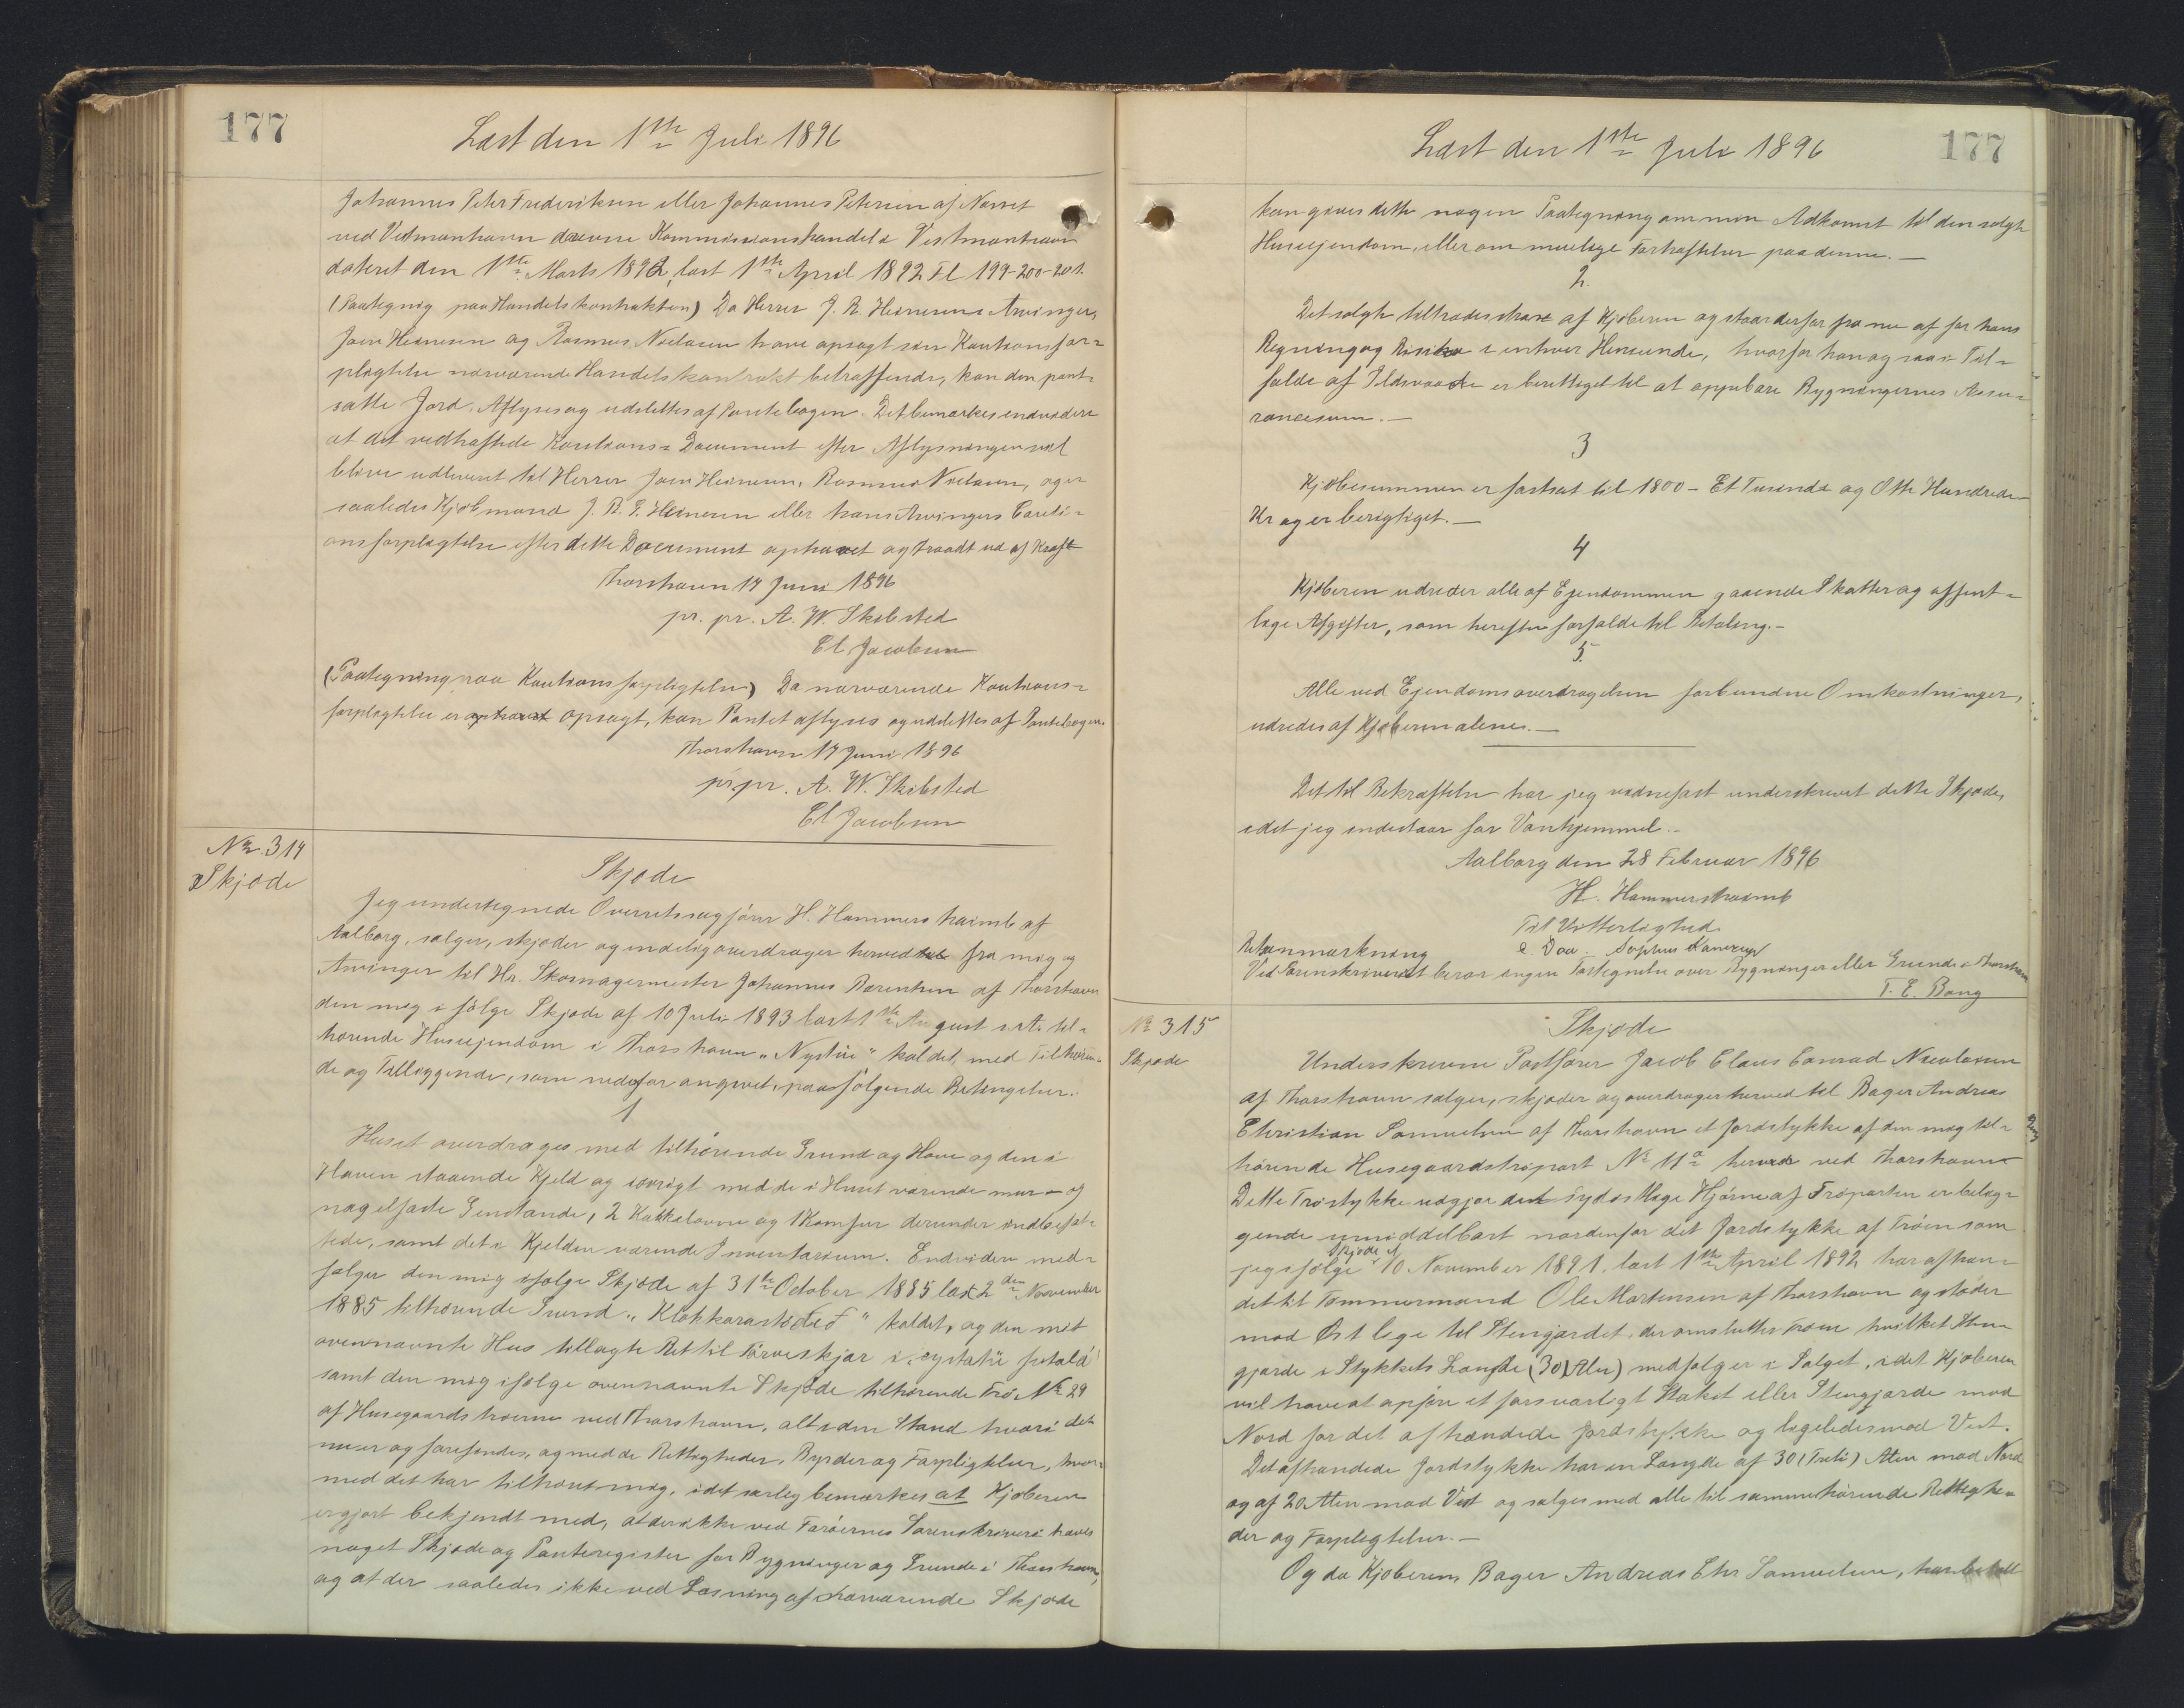 177
Læst den 1ste Juli 1896
Johannes Peter Frederiksen eller Johannes Petersen af Norset
ved Vestmanhavn drevne Kommissionshandel i Vestmanhavn
dateret den 1ste Marts 1892, læst 1ste April 1892 Fl 199-200-201.
(Paategnig paa Handelskontrakten) Da Herrer J. R. Heinesens Arvinger,
Joen Heinesen og Rasmus Nielasen have opsagt sin Kautionsfor-
pligtelse nærværende Handelskontrakt betræffende, kan den pant-
satte Jord, Aflyses og udslettes af Pantebogen. Det bemærkes endvidere
at det vedhæftede Kautions- Document efter Aflysningen vil
blive udleveret til Herrer Joen Heinesen, Rasmus Nielasen, og er
saaledes Kjøbmand J. R. E. Heinesen eller hans Arvingers Cauti-
onsforpligtelse efter dette Document ophævet og traadt ud af Kraft
Thorshavn 17 Juni 1896
pr. pr. A. W. Skibsted
El. Jacobsen
(Paategning paa Kautionsforpligtelse) Da nærværende Kautions-
forpligtelse er ophævet opsagt, kan Pantet aflyses og udslettes af Pantebogen.
Thorshavn 17 Juni 1896
pr.pr. A. W. Skibsted
El Jacobsen
No 314
Skjøde
Skjøde
Jeg undertegnede Overretssagfører H. Hammershaimb af
Aalborg, sælger, skjøder og endelig overdrager herved til fra mig og
Arvinger til Hr. Skomagermester Johannes Berentsen af Thorshavn
den mig i følge Skjøde af 10 Juli 1893 læst 1ste August s. A. til-
hørende Husejendom i Thorshavn "Nystue" kaldet, med Tilhøren-
de og Tilliggende, som nedenfor angivet, paa følgende Betingelser.
1
Huset overdrages med tilhørende Grund og Have og den i
Haven staaende Kjeld og iøvrigt med de i Huset værende mur- og
nagelfaste Genstande, 2 Kakkelovne og 1 Komfur derunder indbefat-
tede, samt det i Kjelden værende Inventarium. Endvidere med-
følger den mig ifølge Skjøde af 31te October 1885 læst 2den November
1885 tilhørende Grund "Klokkarastødeð" kaldet, og den mit
ovennævnte Hus tillagte Ret til Tørveskjær i
samt den mig ifølge ovennævnte Skjøde tilhørende Trø No 29
af Husegaardstrøerne ved Thorshavn, alt i den Stand hvori det
nu er og forefindes, og med de Rettigheder, Byrder og Forpligtelser, hvor-
med det har tilhørt mig, idet særlig bemærkes at Kjøberen
er gjort bekjendt med, at der ikke ved Færøernes Sorenskriveri haves
noget Skjøde og Panteregister for Bygninger og Grunde i Thorshavn,
og at der saaledes ikke ved Læsning af nærværende Skjøde
Læst den 1ste Juli 1896
177
kan gives dette nogen Paategning om min Adkomst til den solgte
Husejendom, eller om muelige Forhæftelser paa denne. —
2.
Det solgte tiltrædes strax af Kjøberen og staar derfor fra nu af for hans
Regning og Risiko i enhver Henseende, hvorfor han ogsaa i Til-
fælde af Ildsvaade er berettiget til at oppebære Bygningernes Assu-
rancesum. —
3
Kjøbesummen er fastsat til 1800 - Et Tusende og Otte Hundrede
Kr og er berigtiget. —
4
Kjøberen udreder alle af Ejendommen gaaende Skatter og offent-
lige Afgifter, som herefter forfalde til Betaling. -
5.
Alle ved Ejendomsoverdragelsen forbundne Omkostninger,
udredes af Kjøberen alene. —
Det til Bekræftelse har jeg vidnefast underskrevet dette Skjøde,
idet jeg indestaar for Vanhjemmel. -
Aalborg den 28 Februar 1896
H. Hammershaimb
Til Vitterlighed
Retanmærkning
Sophus
Ved Sorenskriveriet beror ingen Fortegnelse over Bygninger eller Grunde i Thorshavn
T. E. Bang
No 315
Skjøde
Skjøde
Underskrevne Postfører Jacob Claus Conrad Nicolaisen
af Thorshavn sælger, skjøder og overdrager herved til Bager Andreas
Christian Samuelsen af Thorshavn et Jordstykke af den mig til-
hørende Husegaardstrøpart No 11a herved ved Thorshavn
Dette Trøstykke udgjør det sydøstlige Hjørne af Trøparten er belig-
gende umiddelbart nordenfor det Jordstykke af Trøen som
Skjøde af
jeg ifølge 10 November 1891, læst 1ste April 1892 har afhæn-
det til Tømmermand Ole Mortensen af Thorshavn og støder
mod Øst lige til Stengjærdet, der omslutter Trøen hvilket Sten-
gjærde i Stykkets Længde (30 Alen) medfølger i Salget, idet Kjøberen
vil have at opføre et forsvarligt Stakit eller Stengjærde mod
Nord for det afhændede Jordstykke og ligeledes mod Vest.
Det afhændede Jordstykke har en Længde af 30 (Treti) Alen mod Nord
og af 20 Alen mod Vest og sælges med alle til samme hørende Rettighe-
der og Forpligtelser. —
Og da Kjøberen, Bager Andreas Chr Samuelsen, har betalt